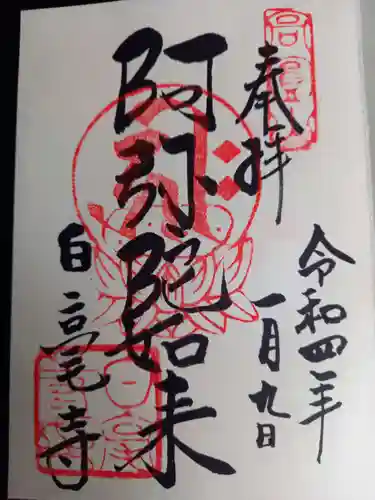 奉拝
令和四年
一月九日
阿弥陀如来
白高尾寺